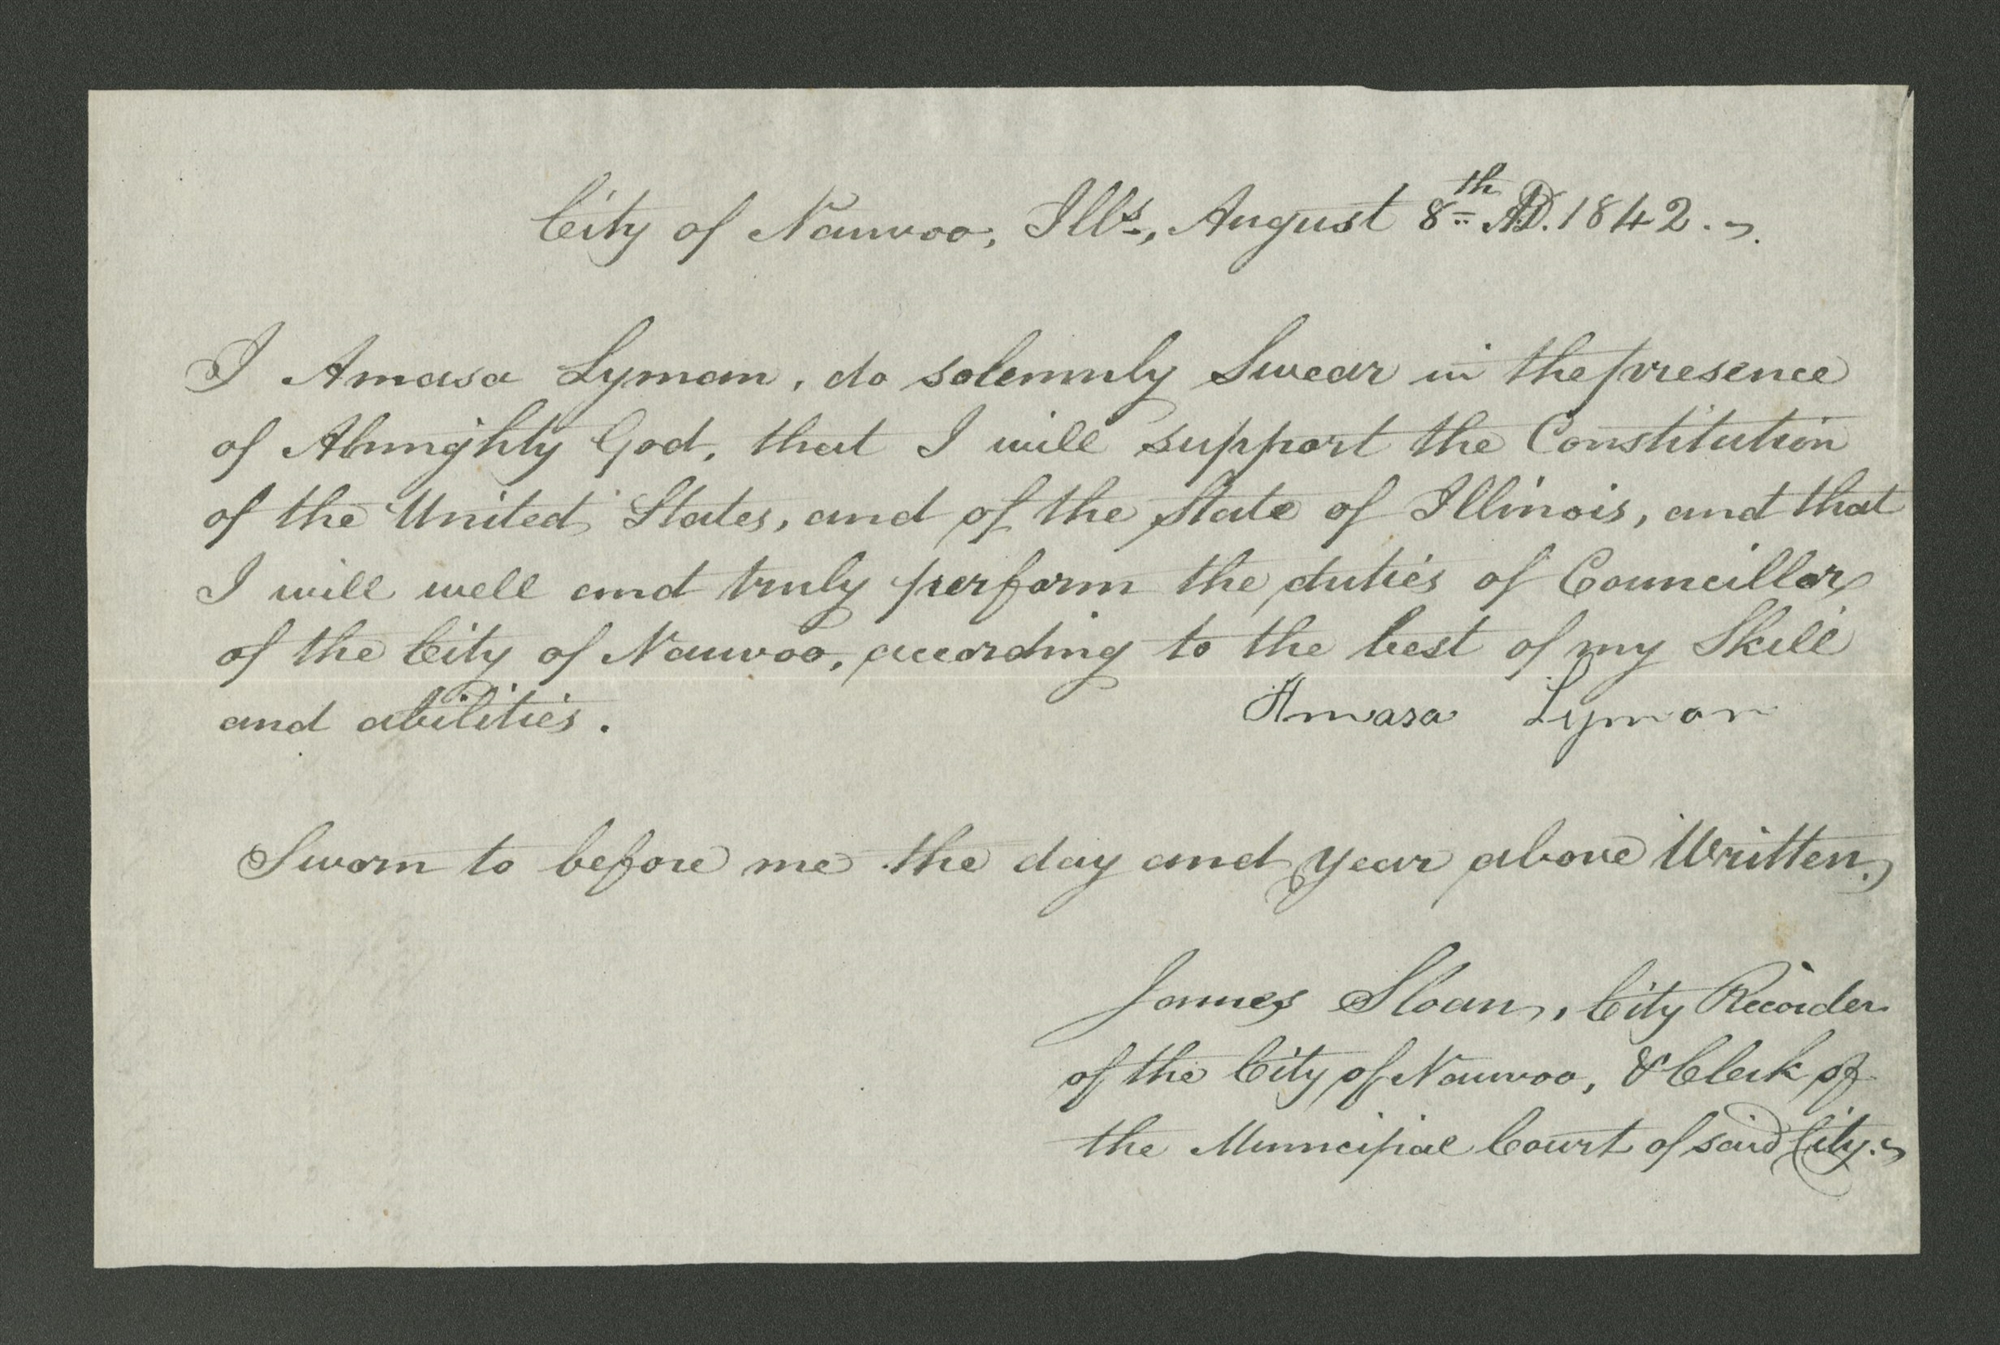 City of Nauvoo, Ills., August 8th AD. 1842.
I Amasa Lyman, do solemnly Swear in the presence
of Almighty God, that I will support the Constitution
of the United States, and of the State of Illinois, and that
I will well and truly perform the duties of Councillor
of the City of Nauvoo, according to the best of my Skill
and abilities. Amasa Lyman
Sworn to before me the day and year above Written.
James Sloan, City Recorder
of the City of Nauvoo, & Clerk of
the Municipal Court of said City.